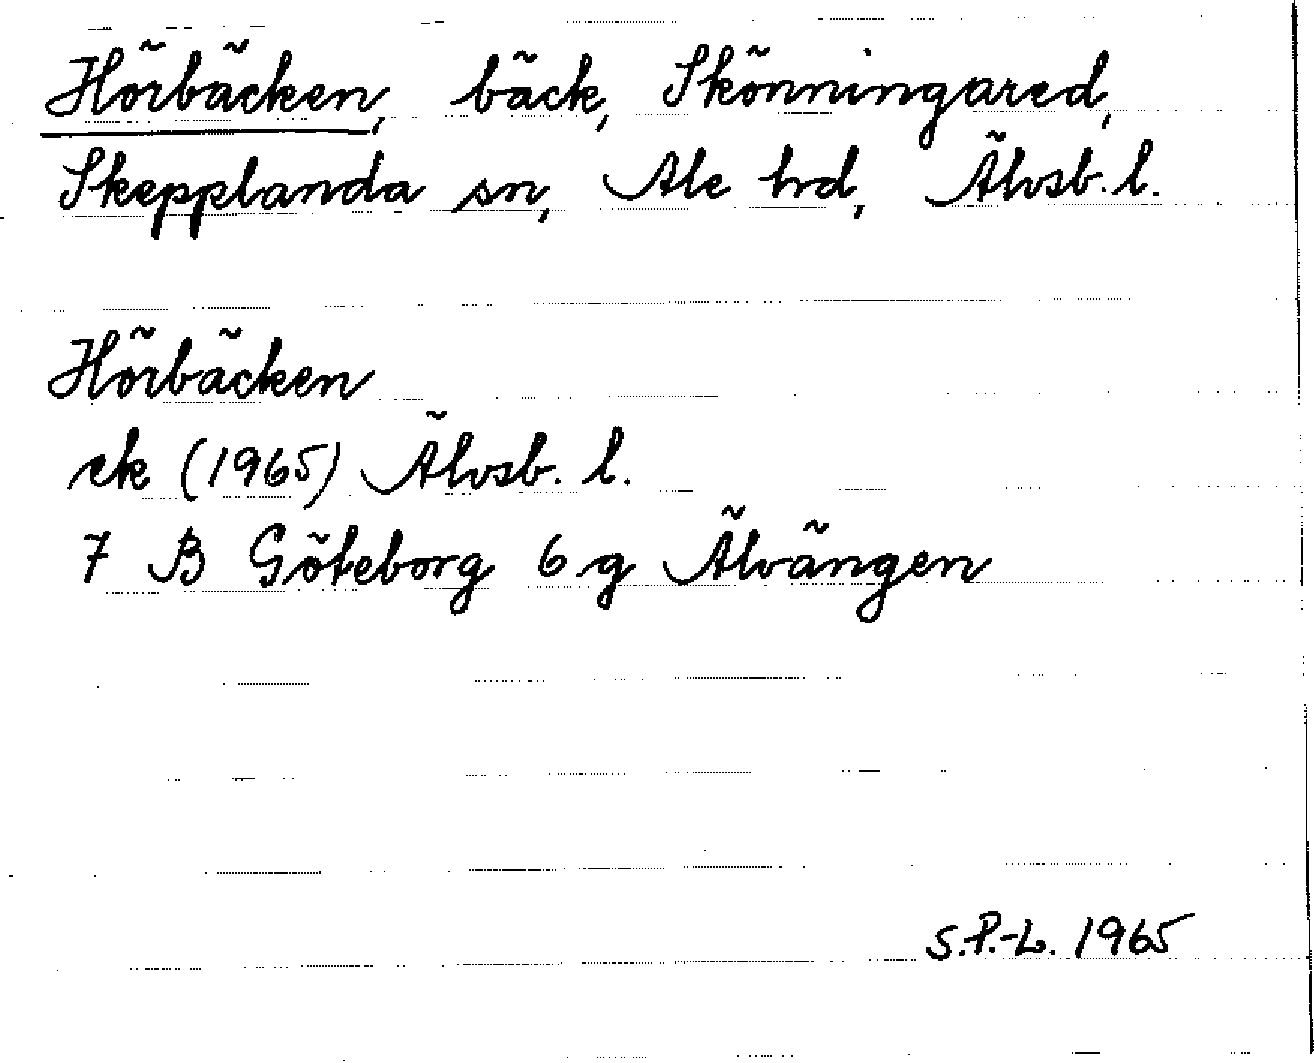 Hörbäcken, bäck, Skönningared,
Skepplanda sn, Ale hrd, Älvsb. l.
Hörbäcken
ek (1965) Älvsb. l.
7 B Göteborg 6 g Älvängen
S.P.-L. 1965